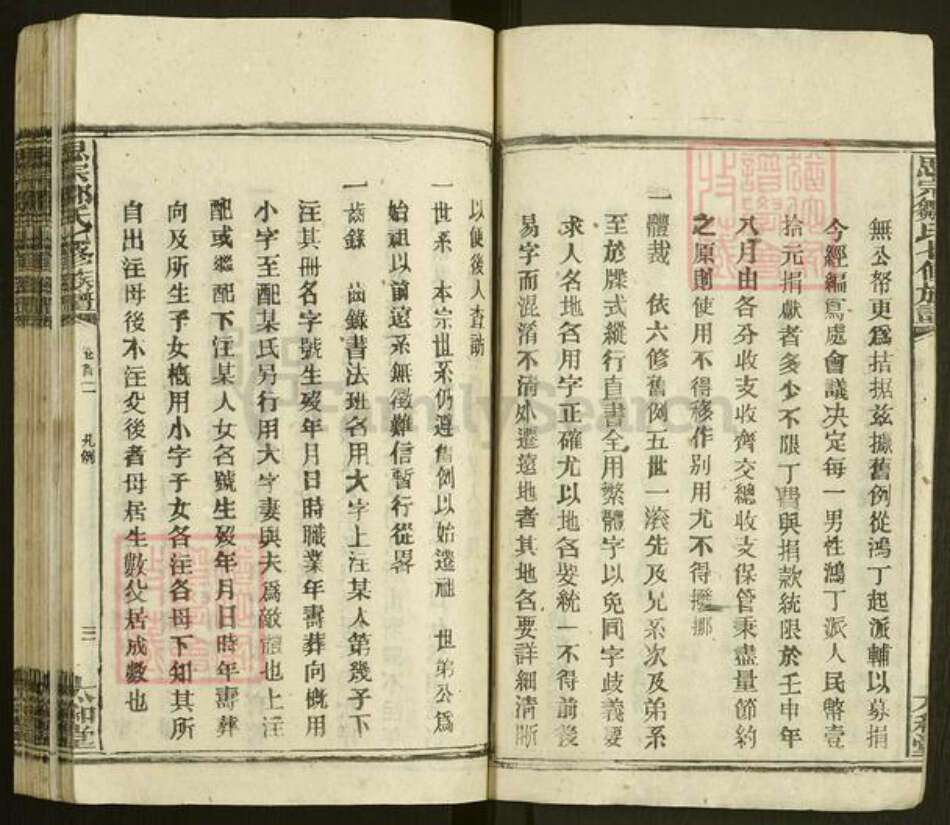 無公帑更為拮据兹據舊例從鴻丁起派輔以募捐
今經編寫處會議决定每一男性鴻丁派人民幣壹
拾元捐獻者多少不限丁費與捐款統限於壬申年
八月由各分收支收齊交總收支保管秉盡量節約
之原則使用不得移作別用尤不得挪
一體裁 依六修舊例五世一滚先及兄系次及弟系
至於牒式縱行直書全用繁體字以免同字歧義要
求人名地名用字正確尤以地名要統一不得前後
易字而混淆不清外遷遠地者其地名要詳細清晰
以便後人查訪
一世系 本宗世系仍遵舊例以始遷祖 世弟公為
始祖以前遠系無徵難信暫行從畧
一齒錄 齒錄書法班名用大字上注某人第幾子下
注其册名字號生殁年月日時職業年壽葬向概用
小字至配某氏另行用大字妻與夫為敵體也上注
配或繼配下注某人女名號生殁年月日時年壽葬
向及所生子女概用小字子女各注各母下知其所
自出注母後不注父後者母居生數父居成數也
卷首二
凡例
三
FamilySearch